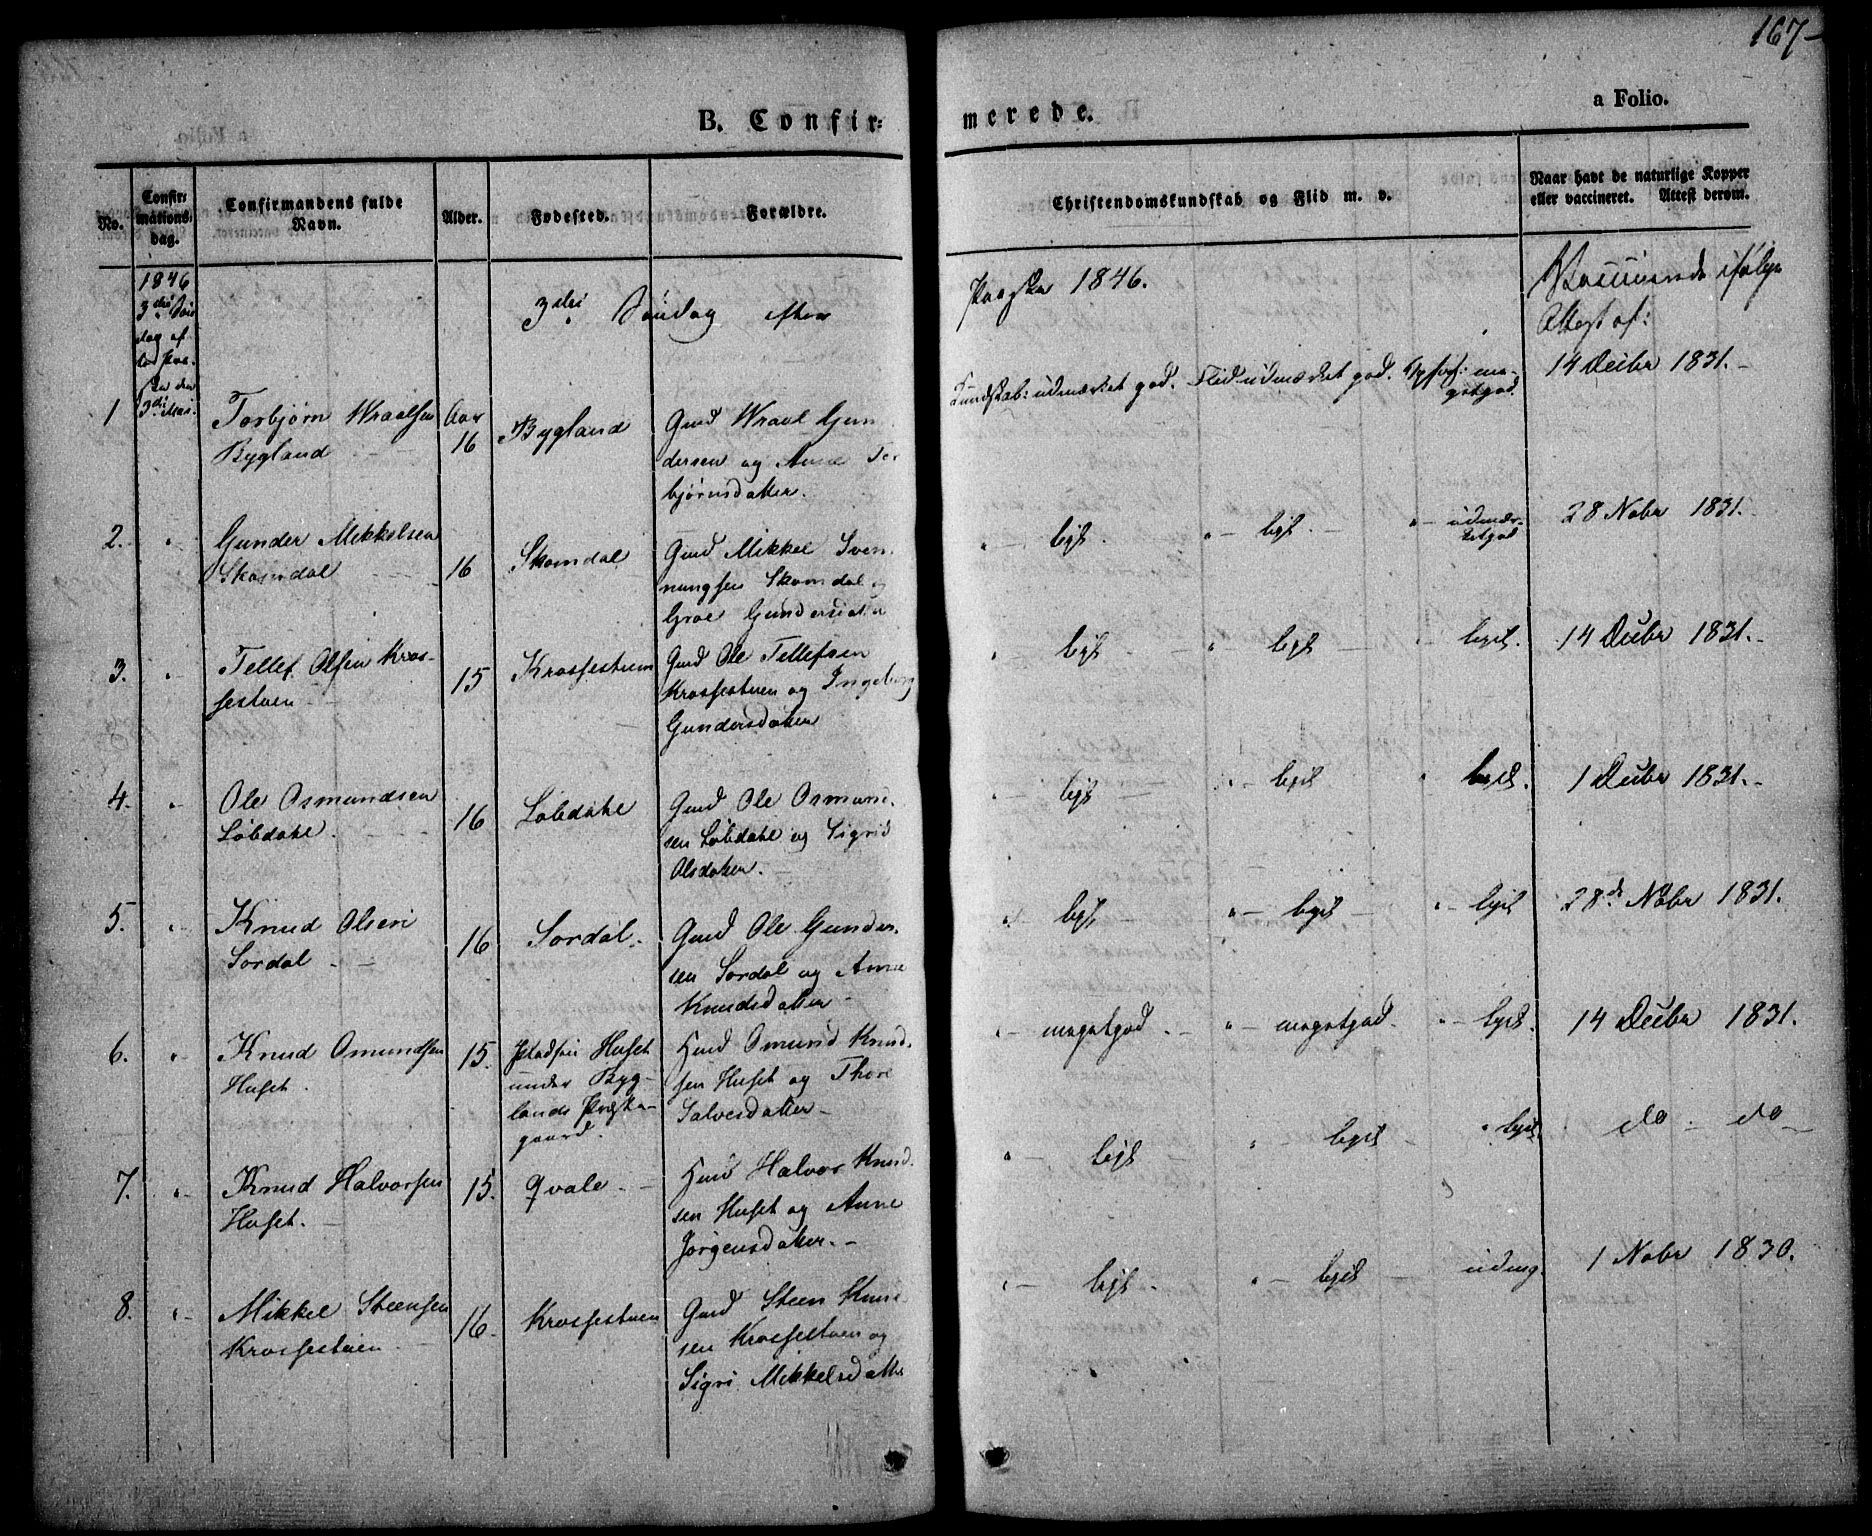 167
B. Confir=
merede.
a Folio.
No.
Confir=
mations=
dag.
Confirmandens fulde
Navn.
Alder.
Fødested.
Forældre.
Christendomskundskab og Flid m. v.
Naar havt de naturlige Kopper
eller vaccineret. Attest derom.
1846
3die Søn
dag ef
ter Paa-
ske den
3die Mai.
3die Søndag efter
Paaske 1846.
Vaccinerede ifølge
Attest af:
1
Torbjørn Wraalsen
Bygland
Aar
16
Bygland
Gmd Wraal Gun
dersen og Anne Tor
bjørnsdatter.
Kundskab: udmærket god. Flid udmærket god. Opførs: me-
getgod.
14 Decbr 1831.
2.
Gunder Mikkelsen
Skomdal
16
Skomdal
Gmd Mikkel Sven
nungsen Skomdal og
Groe Gundersdatter
" — ligs. " — ligs. — " — udmær-
ketgod
28 Nobr 1831.
3.
Tellef Olsen Kros-
sestuen
15
Krossestuen
Gmd Ole Tellefsen
Krossestuen og Ingeborg
Gundersdatter
" — ligs — " — ligs — ligs.
14 Decbr 1831.
4.
Ole Osmundsen
Løbdahl
16
Løbdahl
Gmd Ole Osmund.
sen Løbdahl og Sigrid
Olsdatter.
" — ligs " — ligs " ligs.
1 Decbr 1831.
5.
Knud Olsen
Sordal
16
Sordal
Gmd Ole Gunder.
sen Sordal og Anne
Knudsdatter
" — ligs — " — ligs — " — ligs
28de Nobr 1831.
6.
Knud Omundsen
Huset.
15.
Pladsen Huset
under Byg-
lands Præste-
gaard.
Hmd Omund Knud.
sen Huset og Thore
Salvesdatter
" — megetgod. — " — megetgod. " — ligs.
14 Decbr 1831.
7.
Knud Halvorsen
Huset.
15.
Qvale
Hmd Halvor Knud.
sen Huset og Anne
Jørgensdatter.
" — ligs " — ligs — " ligs.
do - do
8.
Mikkel Steensen
Krossestuen
16
Krossestuen
Gmd Steen Knud
sen Krossestuen og
Sigri Mikkelsdatter
" — ligs. " — ligs — udmg.
1 Nobr 1830.